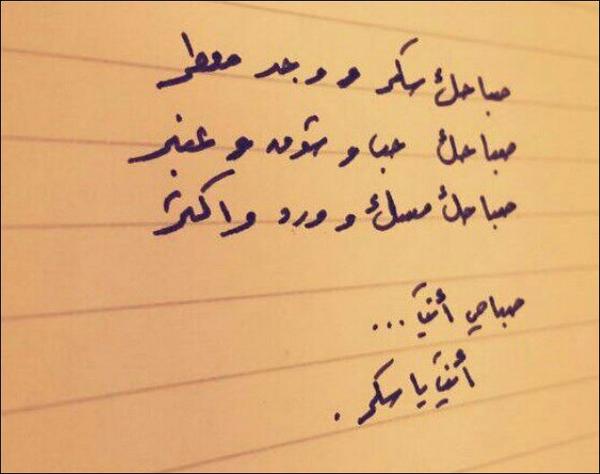 صباحك سكر و وجد معطر
صباحك حبا و شوق و عنبر
صباحك مسك و ورد و اكثر
صباحي أنت ...
أنت يا سكر .